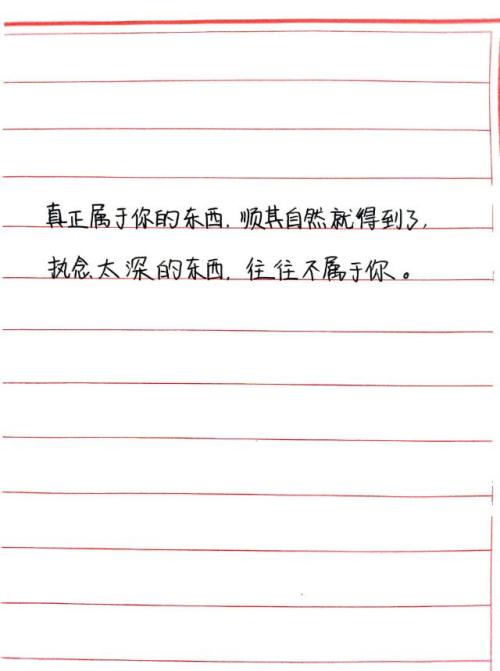 真正属于你的东西，顺其自然就得到了，
执念太深的东西，往往不属于你。